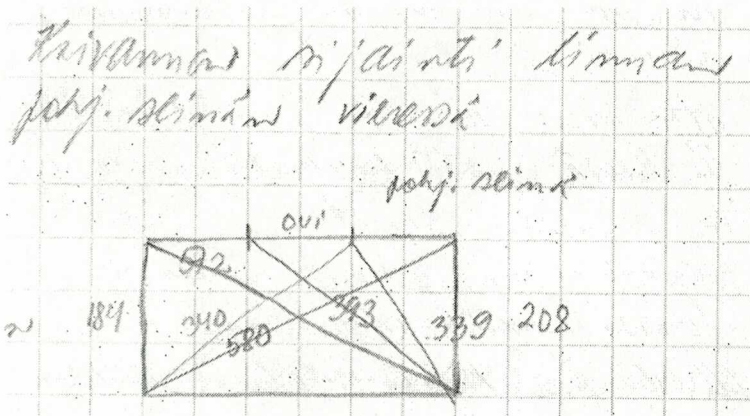 Kaivannon sijainti linnan
pohj. seinän vieressä
pohj. seinä
OVI
592
184 340 393 339 208
580